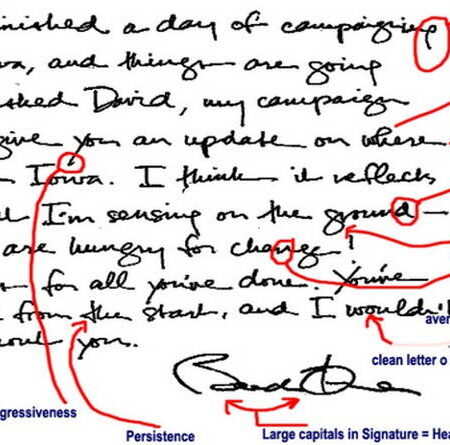 nished a day of campaigning
wa, and things are going
sked David, my campaign
give you an update on where
Iowa. I think it reflects
I'm sensing on the ground —
are hungry for change!
for all you've done. You've
from the start, and I wouldn't
you.
aver
clean letter o
gressiveness
Persistence
Large capitals in Signature = Hea